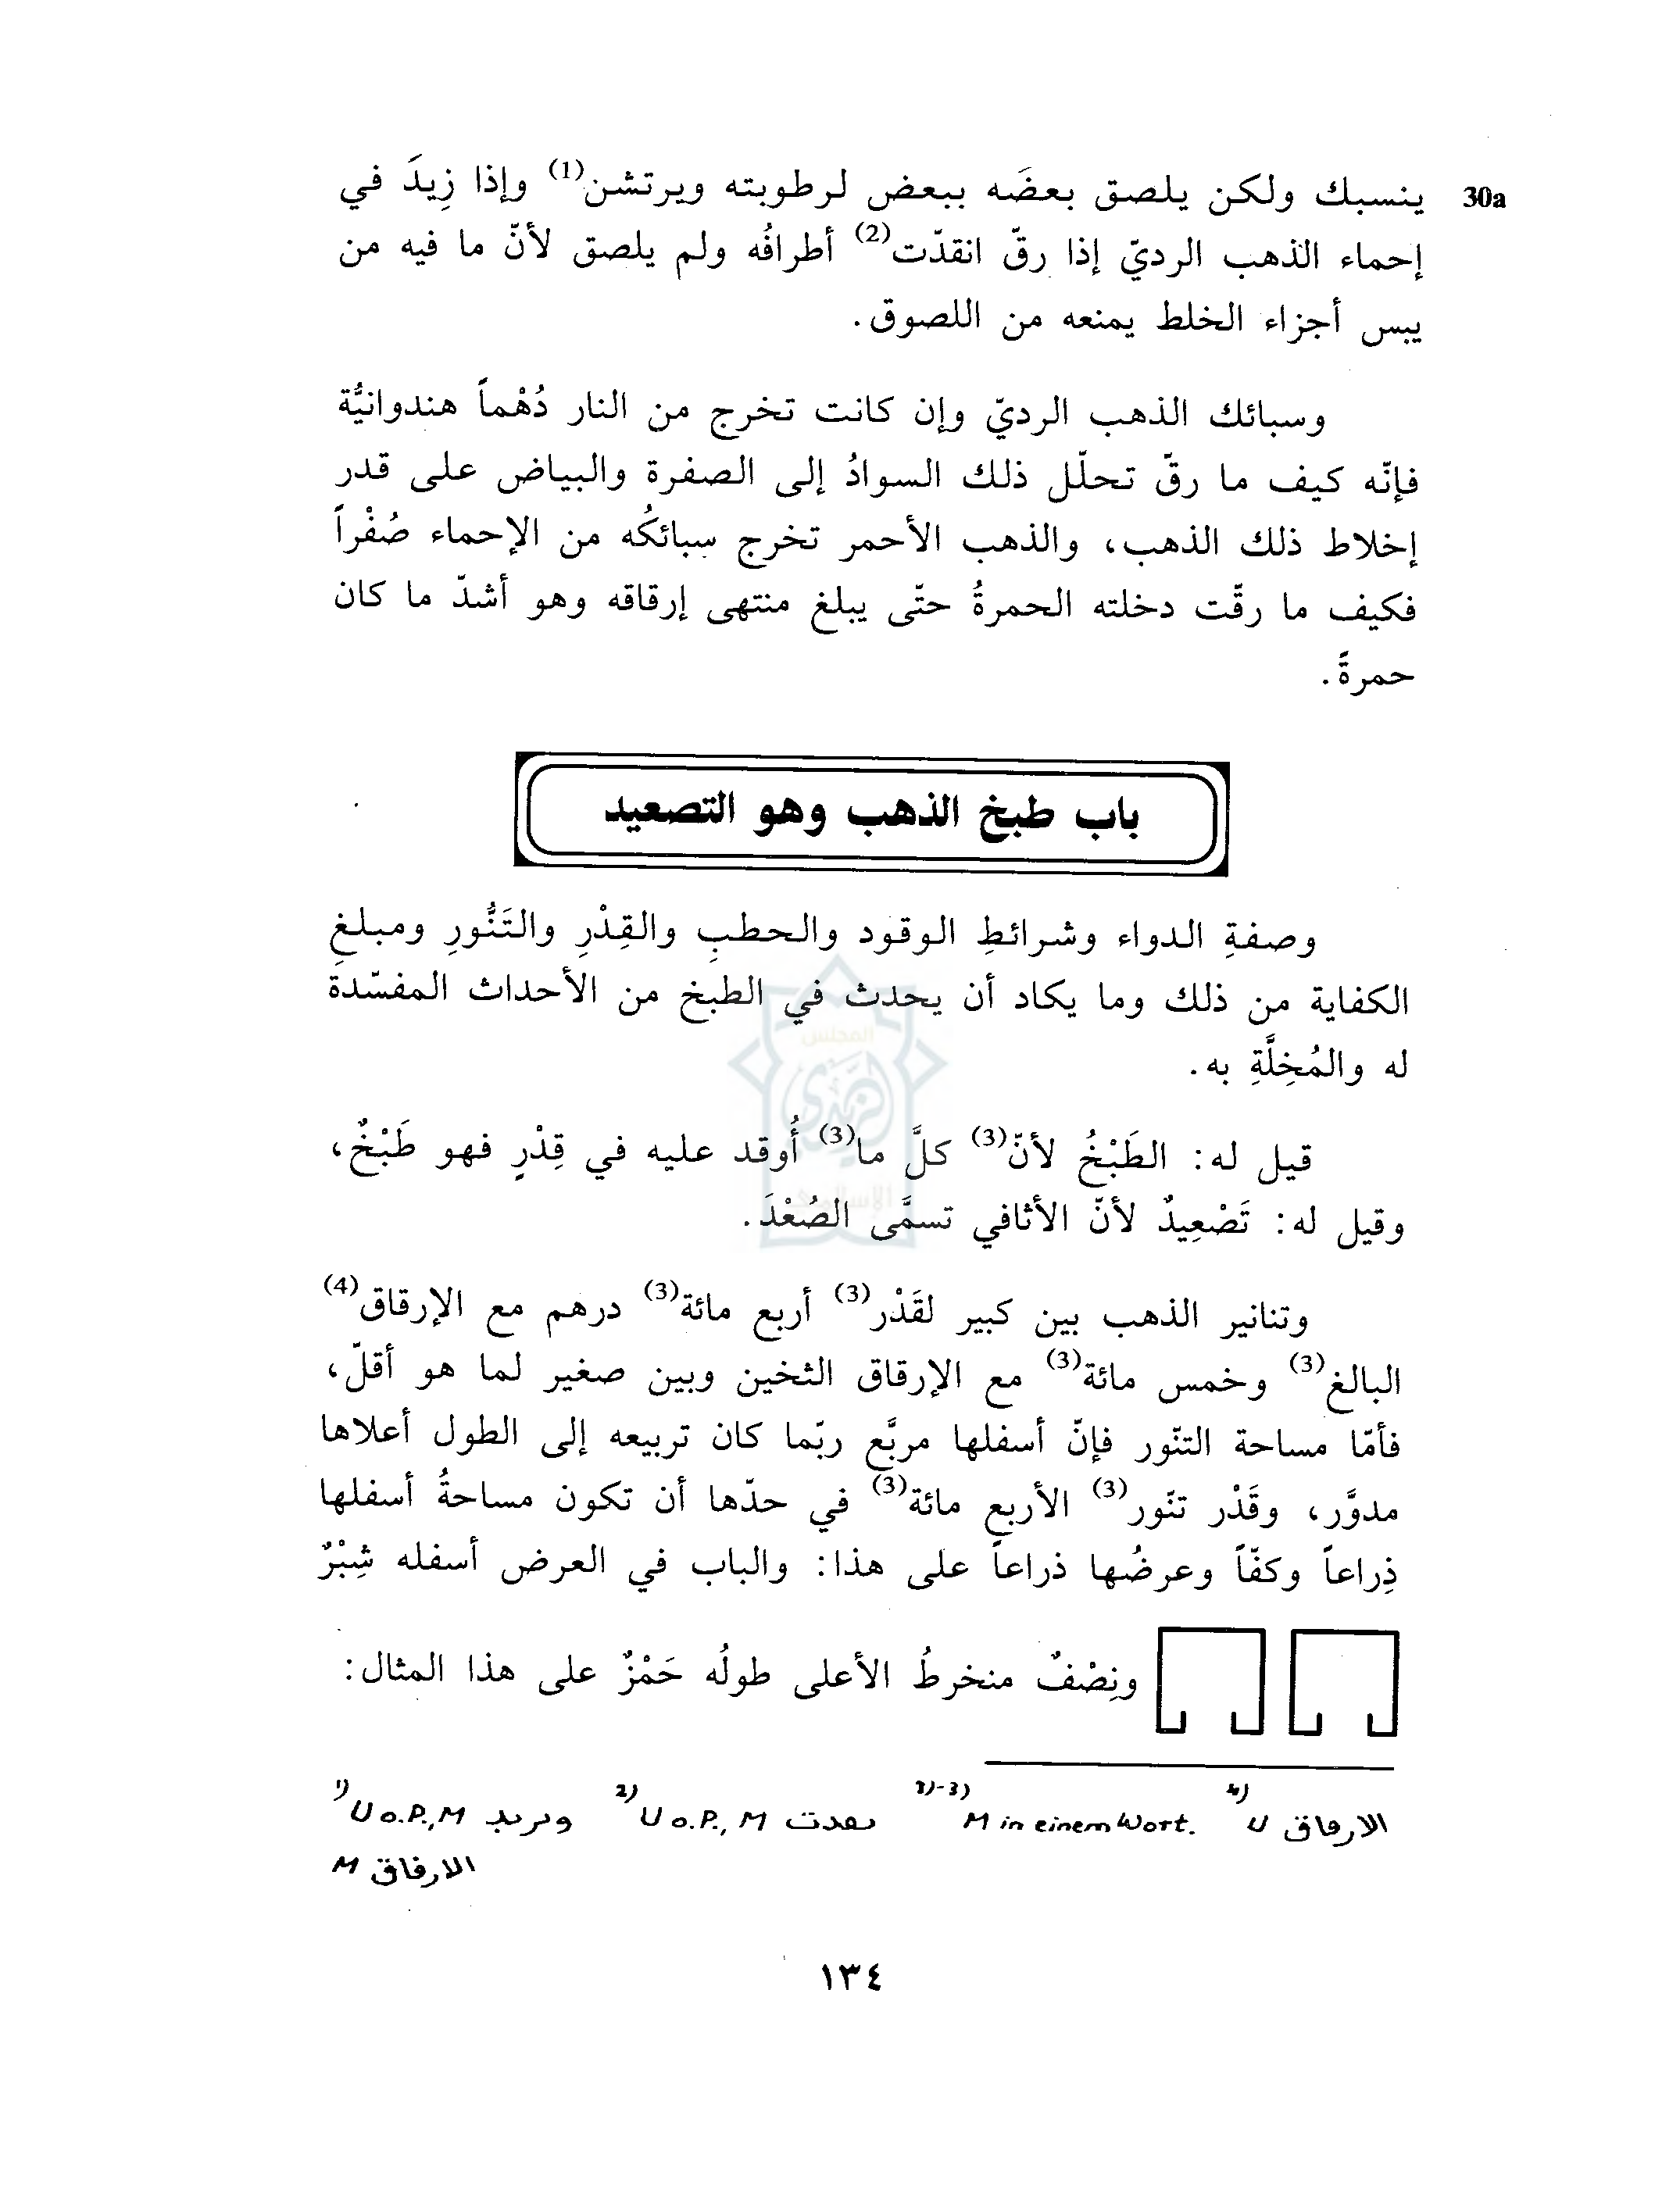 30a
ينسبك ولكن يلصق بعضَه ببعض لرطوبته ويرتشن(1) وإذا زِيدَ في
إحماء الذهب الرديّ إذا رقّ انقدّت(2) أطرافُه ولم يلصق لأنّ ما فيه من
يبس أجزاء الخلط يمنعه من اللصوق.
وسبائك الذهب الرديّ وإن كانت تخرج من النار دُهْماً هندوانيَّة
فإنّه كيف ما رقّ تحلّل ذلك السوادُ إلى الصفرة والبياض على قدر
إخلاط ذلك الذهب، والذهب الأحمر تخرج سبائكُه من الإحماء صُفْراً
فكيف ما رقّت دخلته الحمرةُ حتّى يبلغ منتهى إرقاقه وهو أشدّ ما كان
حمرةً.
باب طبخ الذهب وهو التصعيد
وصفةِ الدواء وشرائطِ الوقود والحطبِ والقِدْرِ والتَنُّورِ ومبلغِ
الكفاية من ذلك وما يكاد أن يحدث في الطبخ من الأحداث المفسّدة
له والمُخِلَّةِ به.
قيل له: الطَبْخُ لأنّ(3) كلَّ ما(3) أُوقد عليه في قِدْرٍ فهو طَبْخٌ،
وقيل له: تَصْعِيدٌ لأنّ الأثافي تسمَّى الصُعْدَ.
وتنانير الذهب بين كبير لقَدْر(3) أربع مائة(3) درهم مع الإرقاق(4)
البالغ(3) وخمس مائة(3) مع الإرقاق الثخين وبين صغير لما هو أقلّ،
فأمّا مساحة التنّور فإنّ أسفلها مربَّع ربّما كان تربيعه إلى الطول أعلاها
مدوَّر، وقَدْر تنّور(3) الأربع مائة(3) في حدّها أن تكون مساحةُ أسفلها
ذِراعاً وكفّاً وعرضُها ذراعاً على هذا: والباب في العرض أسفله شِبْرٌ
ونِصْفٌ منخرطُ الأعلى طولُه حَمْزٌ على هذا المثال:
1) U o.P., M
2) U o.P., M
3)-3) M in einem Wort.
4) U الارفاق
M الارفاق
المجلس
الإسلامي
١٣٤